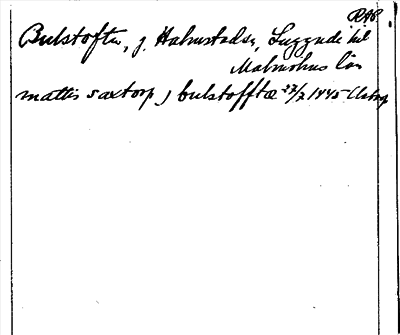 Bulstofta, g. Halmstads sn, Luggude hd
Malmöhus län
mattis saxtorp j bulstofftæ 22/2 1445